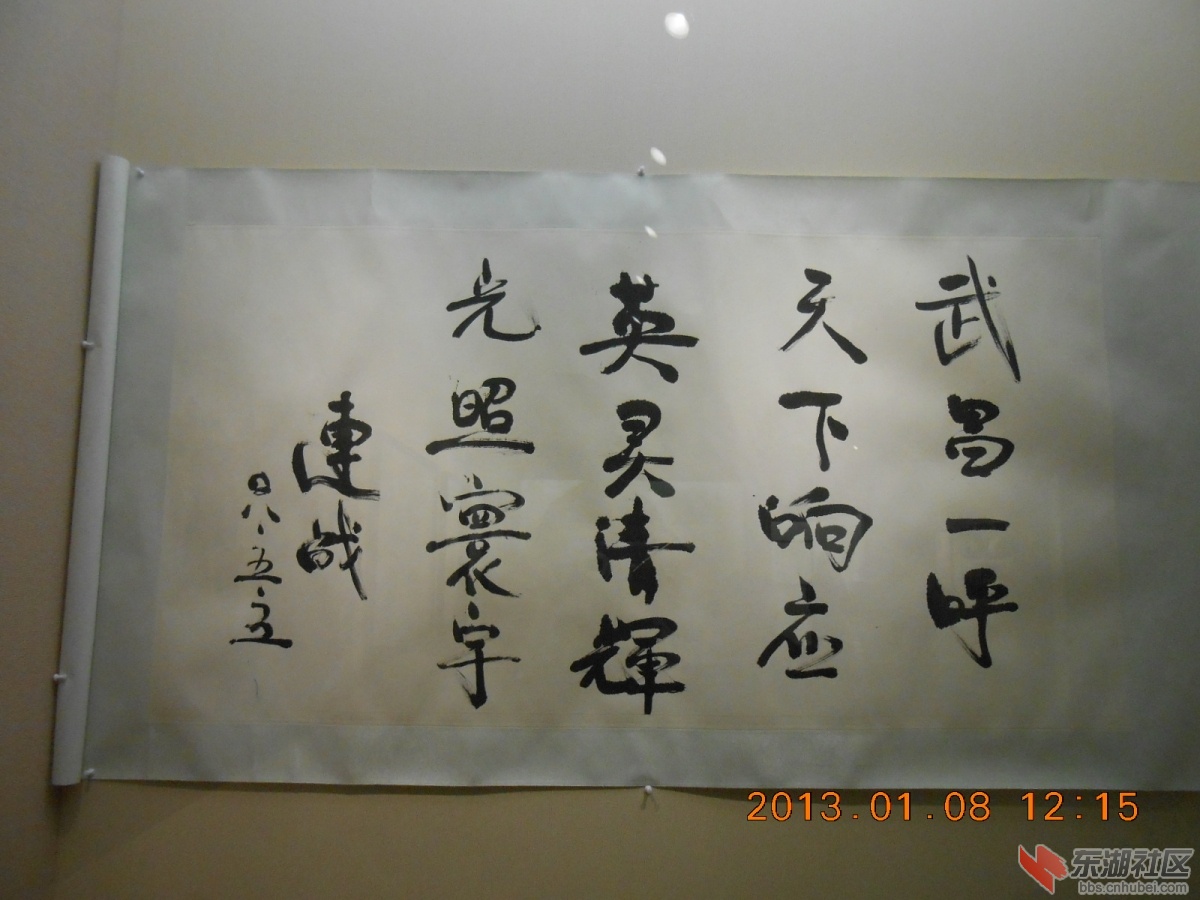 武昌一呼
天下响应
英灵清輝
光照寰宇
連战
〇八.五.五
2013.01.08 12:15
东湖社区
bbs.cnhubei.com